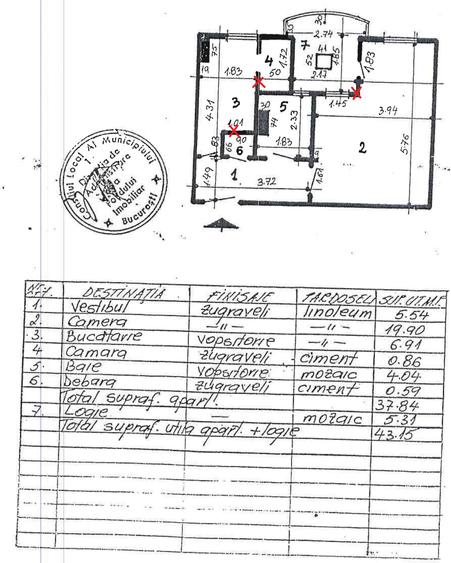 2.74
7
75
4
1.72
41
52
1.85
1.83
19
1.83
50
2.17
1.45
3.94
4.31
3
30
5
2.33
74
1.01
90
1.83
5.76
2
66
6
83
1
1.49
3.72
1.61
Consiliul Local Al Municipiului
Imobiliar
Bucureşti
NR. CRT. DESTINAŢIA FINISAJE PARDOSELI SUP. UT. M.P.
1. Vestibul zugraveli linoleum 5.54
2. Camera —〃— —〃— 19.90
3. Bucătărie vopsitorie —〃— 6.91
4 Camara zugraveli ciment 0.86
5. Baie vopsitorie mozaic 4.04
6. Debara zugraveli ciment 0.59
Total supraf. apart. 37.84
7. Logie — mozaic 5.31
Total supraf. utila apart. + logie 43.15